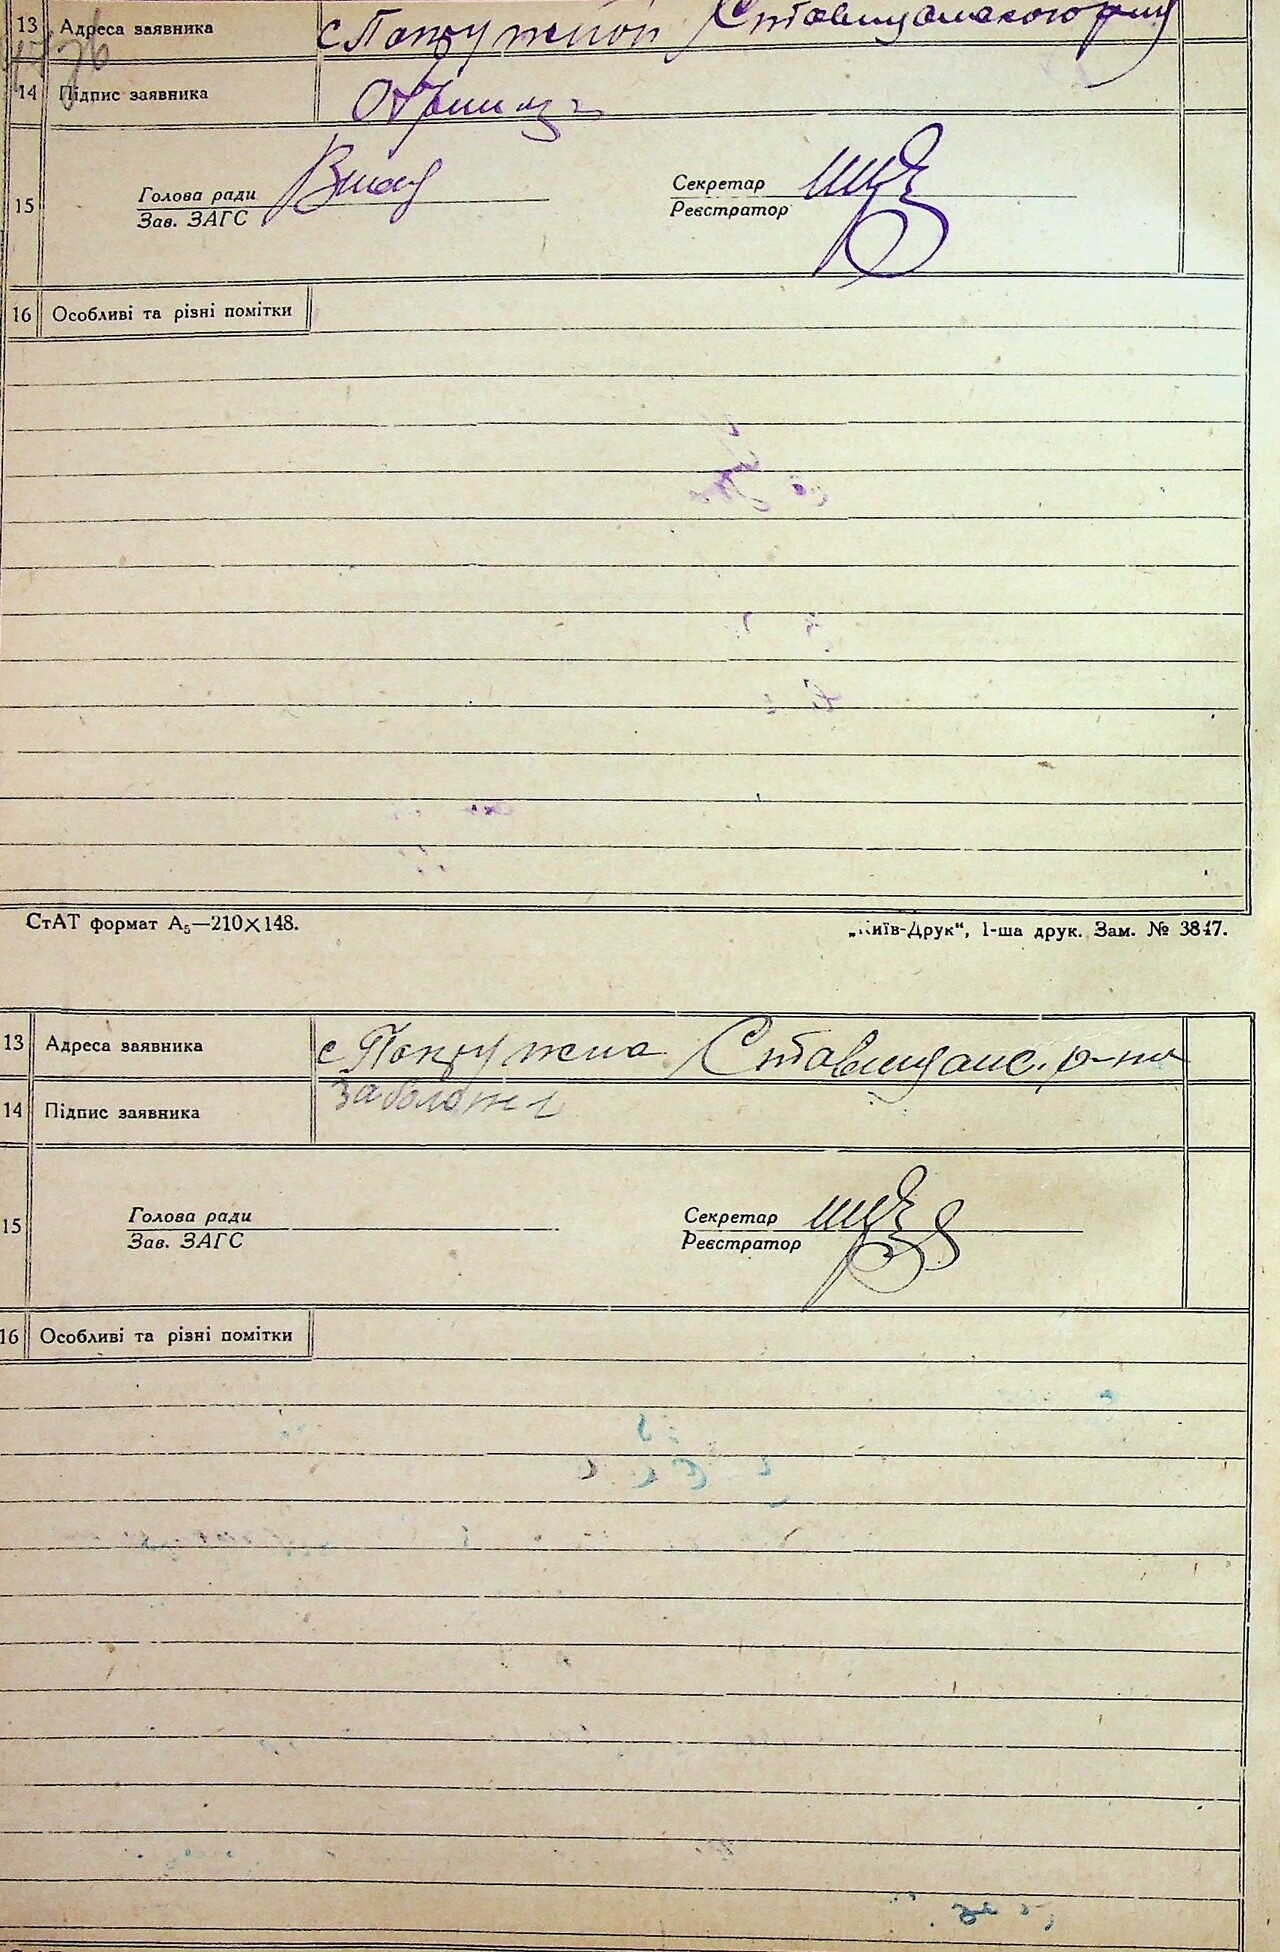 13 Адреса заявника с Попружной Ставищанского р-ну
14 Підпис заявника
15 Голова ради Секретар
Зав. ЗАГС Реєстратор
16 Особливі та різні помітки
СтАТ формат А₅—210×148. „Київ-Друк“, 1-ша друк. Зам. № 3847.
13 Адреса заявника с Попружна Ставищанс. р-на
14 Підпис заявника Заболотна
15 Голова ради Секретар
Зав. ЗАГС Реєстратор
16 Особливі та різні помітки